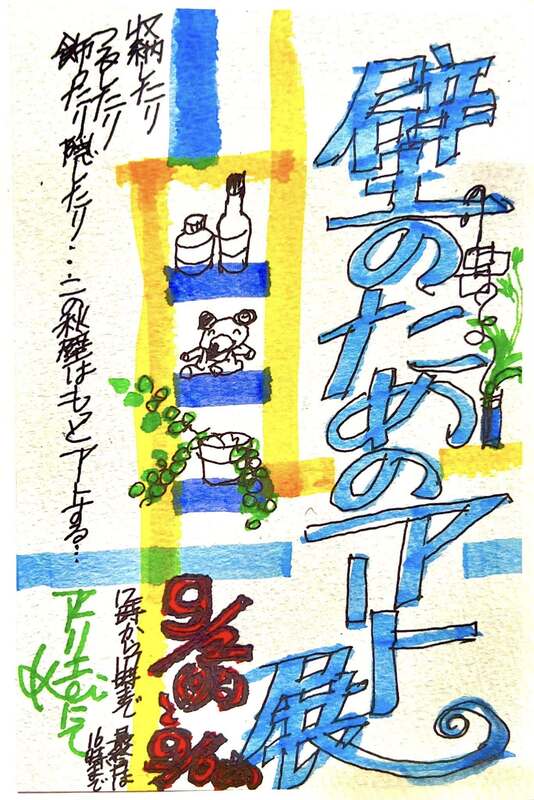 壁のためのアート展
9/2
9/6
時から
時まで
最終日は
16時まで
アトリエKeiにて
収納したり
つるしたり
飾ったり隠したり・・・この秋壁はもっとアートする・・